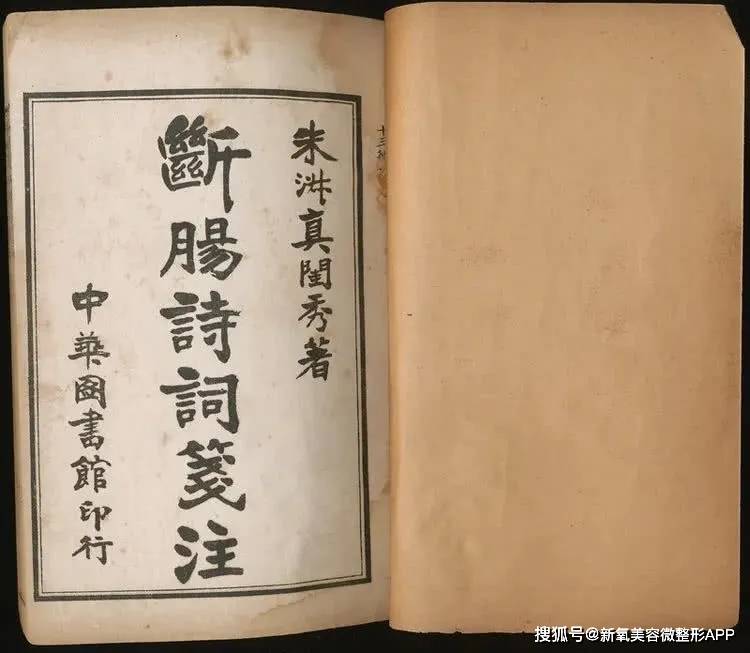 朱淑真閨秀著
斷腸詩詞箋注
中華圖書館印行
搜狐号@新氧美容微整形APP